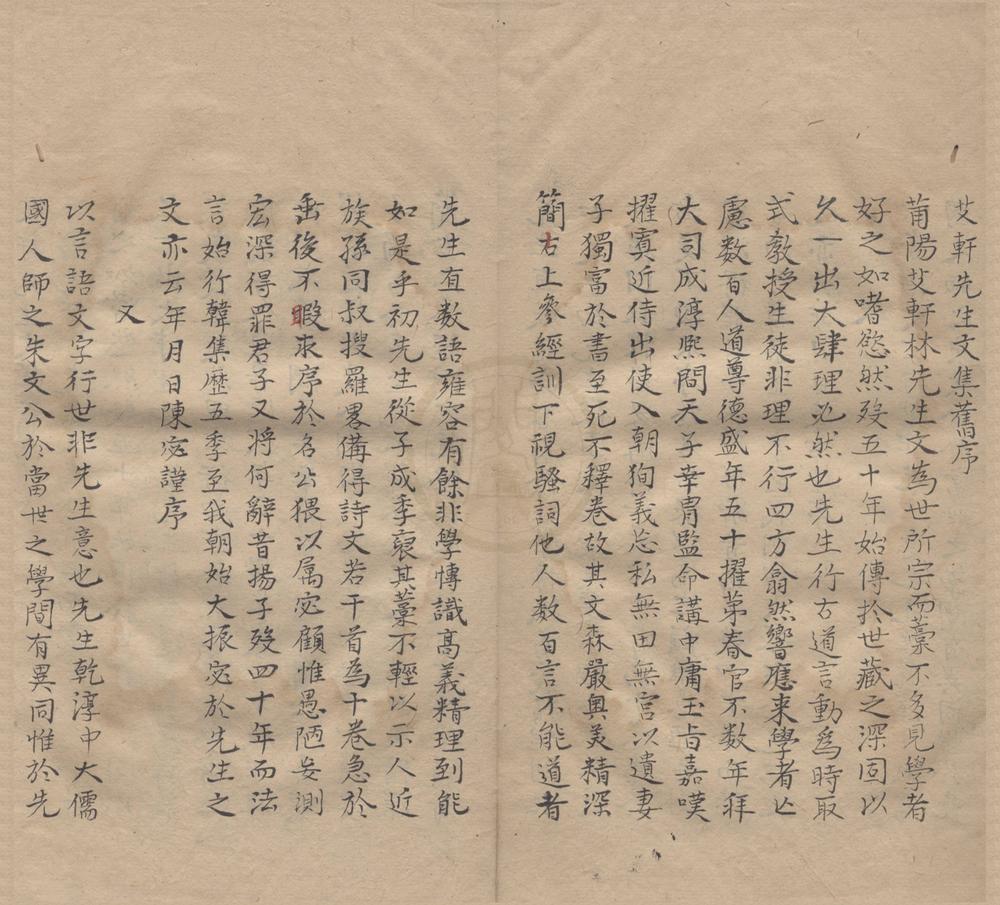 艾軒先生文集舊序
莆陽艾軒林先生文為世所宗而藁不多見學者
好之如嗜慾然歿五十年始傳於世藏之深固以
久一出大肆理必然也先生行古道言動為時取
式教授生徒非理不行四方翕然響應来學者亡
慮数百人道尊德盛年五十擢苐春官不数年拜
大司成淳熙間天子幸胄監命講中庸玉旨嘉嘆
擢寘近侍出使入朝狥義忘私無田無宫以遺妻
子獨富於書至死不釋卷故其文森嚴奥美精深
簡古上參經訓下視騷詞他人数百言不能道者
先生直数語雍容有餘非學愽識髙義精理到能
如是乎初先生從子成季裒其藁不輕以示人近
族孫同叔搜羅畧偹得詩文若干首為十卷急於
垂後不暇求序於名公猥以属宓顧惟愚陋妄測
宏深得罪君子又將何辭昔揚子歿四十年而法
言始行韓集歷五季至我朝始大振宓於先生之
文亦云年月日陳宓謹序
又
以言語文字行世非先生意也先生乾淳中大儒
國人師之朱文公於當世之學間有異同惟於先